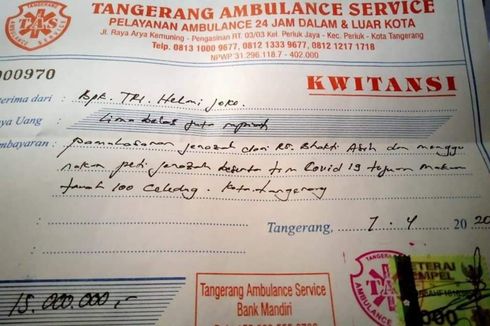 TANGERANG AMBULANCE SERVICE
PELAYANAN AMBULANCE 24 JAM DALAM & LUAR KOTA
Jl. Raya Arya Kemuning - Pengasinan RT. 03/03 Kel. Periuk Jaya - Kec. Periuk - Kota Tangerang
Telp. 0813 1000 9677, 0812 1333 9677, 0812 1217 1718
NPWP 31.296.118.7 - 402.000
000970
KWITANSI
erima dari : Bpk. TRI. Helmi Joko.
ya Uang : Lima belas juta rupiah
mbayaran : pemakasaran jenazah dari RS. Bhakti Asih dan menggu
nakan peti jenazah beserta tim Covid 19 tujuan makam
tanah 100 Ciledug. Kota tangerang
Tangerang, 7 - 4 20
15.000.000,-
TANGERANG
TAS
AMBULANCE
Tangerang Ambulance Service
Bank Mandiri
METERAI
TEMPEL